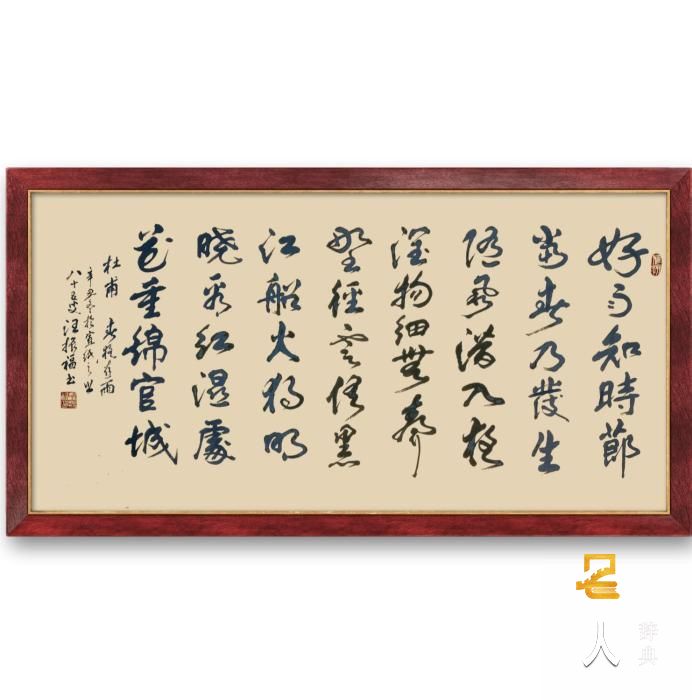 好雨知時節
當春乃發生
隨風潛入夜
潤物細無聲
野徑雲俱黑
江船火獨明
曉看紅濕處
花重綿官城
杜甫 春夜喜雨
辛丑冬於宣紙之
八十五叟汪振福書
名人
辞典